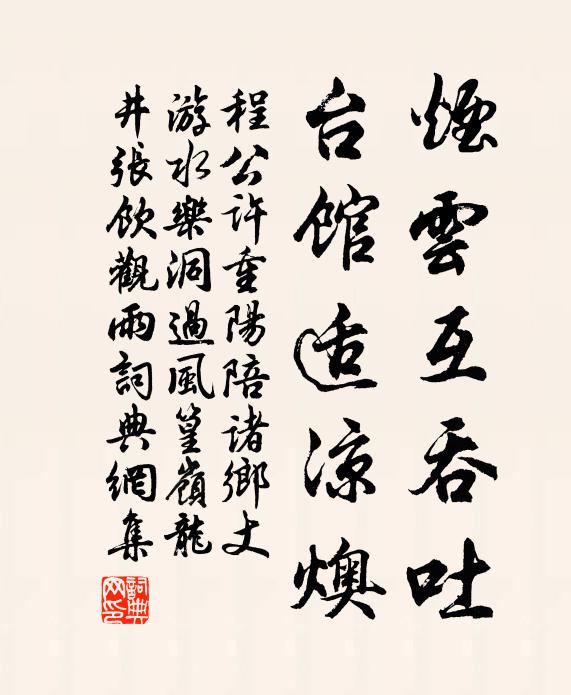 煙雲互吞吐
台館适涼燠
程公許重陽陪諸鄉丈
游水樂洞過風篁嶺龍
井張飲觀雨詞典網集
詞典
网印